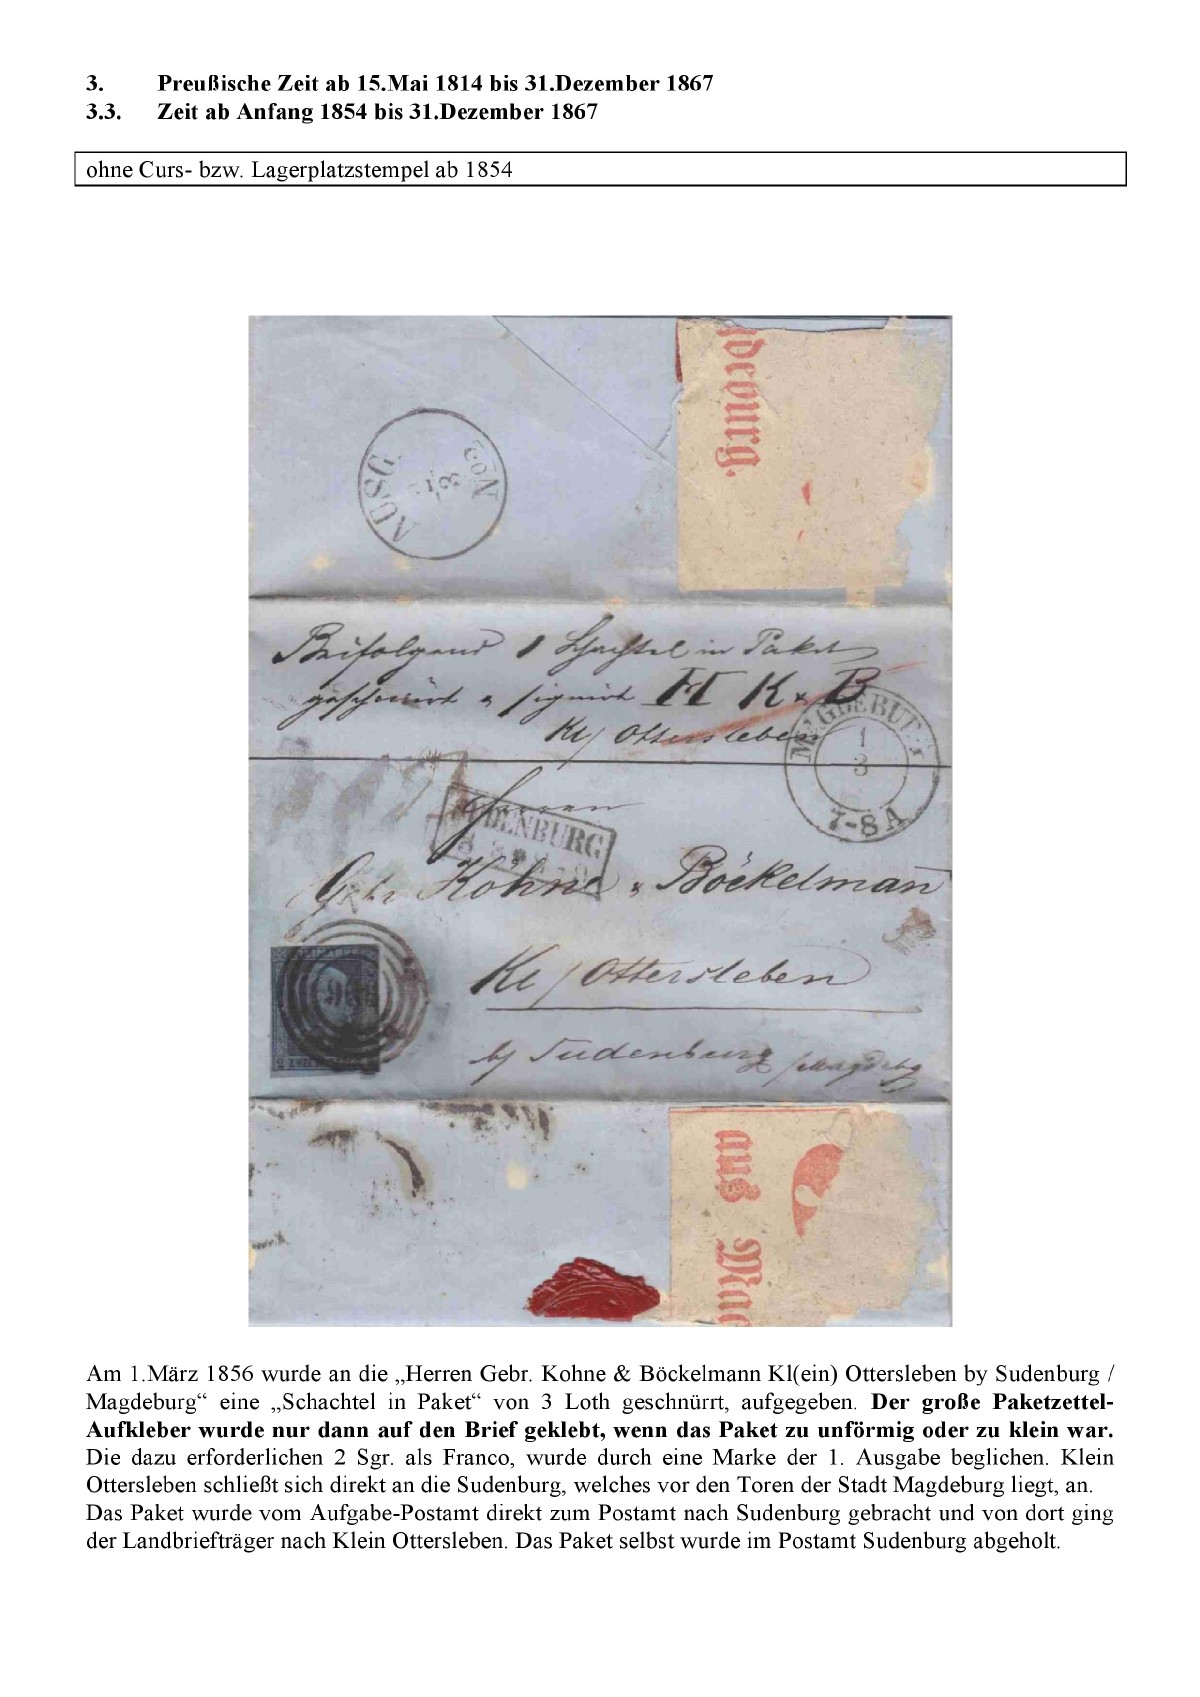 3. Preußische Zeit ab 15.Mai 1814 bis 31.Dezember 1867
3.3. Zeit ab Anfang 1854 bis 31.Dezember 1867
ohne Curs- bzw. Lagerplatzstempel ab 1854
deburg.
AUSG
No 2
Beifolgend 1 Schachtel in Paket
geschnürt & signirt H K & B
Kl/ Ottersleben
MAGDEBURG
1
3
7-8 A
Herren
SUDENBURG
Gebr Kohne & Böckelman
Kl/ Ottersleben
by Sudenburg /Magdebg
aus Mag
Am 1.März 1856 wurde an die „Herren Gebr. Kohne & Böckelmann Kl(ein) Ottersleben by Sudenburg /
Magdeburg“ eine „Schachtel in Paket“ von 3 Loth geschnürrt, aufgegeben. Der große Paketzettel-
Aufkleber wurde nur dann auf den Brief geklebt, wenn das Paket zu unförmig oder zu klein war.
Die dazu erforderlichen 2 Sgr. als Franco, wurde durch eine Marke der 1. Ausgabe beglichen. Klein
Ottersleben schließt sich direkt an die Sudenburg, welches vor den Toren der Stadt Magdeburg liegt, an.
Das Paket wurde vom Aufgabe-Postamt direkt zum Postamt nach Sudenburg gebracht und von dort ging
der Landbriefträger nach Klein Ottersleben. Das Paket selbst wurde im Postamt Sudenburg abgeholt.